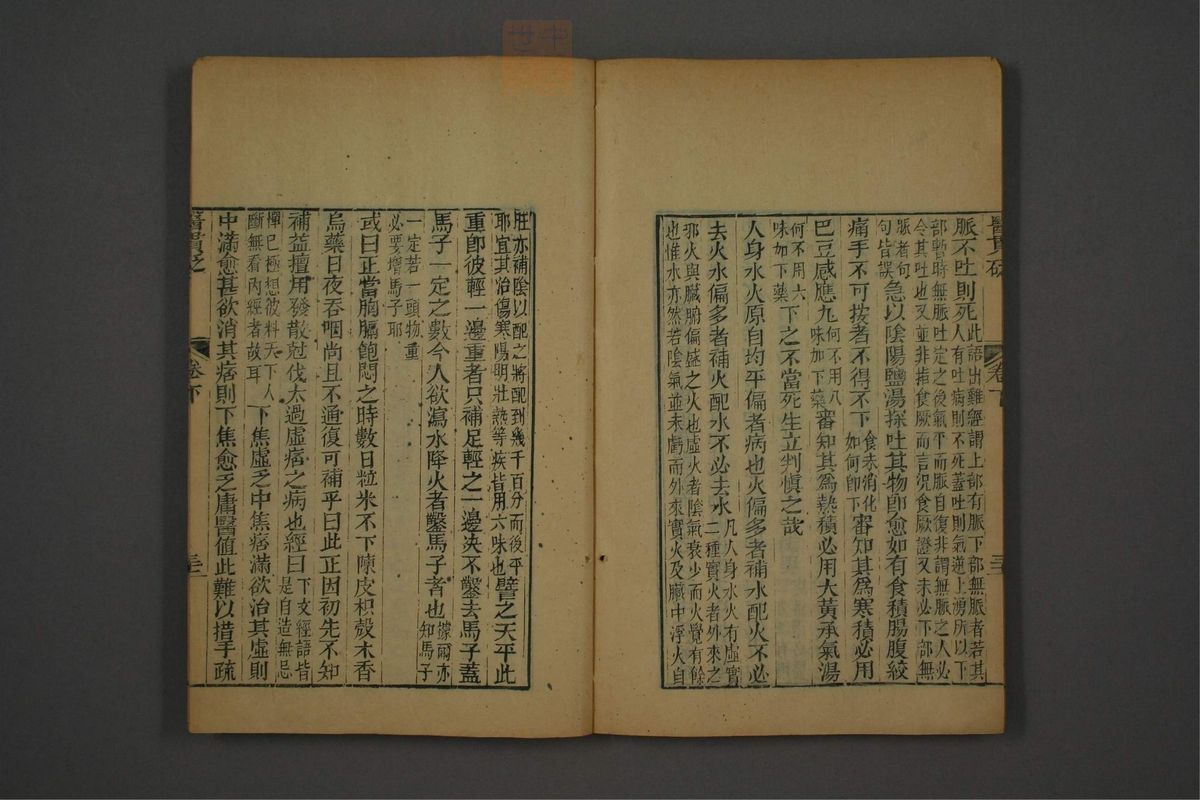 醫貫砭
卷下
脈不吐則死此語出難經謂上部有脈下部無脈者若其人有吐病則不死蓋吐則氣逆上湧所以下
部暫時無脈吐定之後氣平而脈自復非謂無脈之人必令其吐也又並非指食厥而言況食厥證又未必下部無
脈者句句皆誤急以陰陽鹽湯探吐其物卽愈如有食積腸腹絞
痛手不可按者不得不下食赤消化如何卽下審知其爲寒積必用
巴豆感應丸何不用八味加下藥審知其爲熱積必用大黃承氣湯
何不用六味如下藥下之不當死生立判愼之哉
人身水火原自均平偏者病也火偏多者補水配火不必
去火水偏多者補火配水不必去水凡人身水火有虛實二種實火者外來之
邪火與臟腑偏盛之火也虛火者陰氣衰少而火覺有餘也惟水亦然若陰氣並未虧而外來實火及臟中浮火自
旺亦補陰以配之將配到幾千百分而後平耶宜其治傷寒陽明壯熱等疾皆用六味也譬之天平此
重卽彼輕一邊重者只補足輕之一邊決不鑿去馬子蓋
馬子一定之數今人欲瀉水降火者鑿馬子者也據爾亦知馬子
一定若一頭物重必要增馬子耶
或曰正當胸膈飽悶之時數日粒米不下陳皮枳殼木香
烏藥日夜吞咽尚且不通復可補乎曰此正因初先不知
補益擅用發散尅伐太過虛痞之病也經曰下文經語皆是自造無忌
憚已極想彼料天下人斷無看內經者故耳下焦虛乏中焦痞滿欲治其虛則
中滿愈甚欲消其痞則下焦愈乏庸醫值此難以措手疏
醫貫砭
卷下